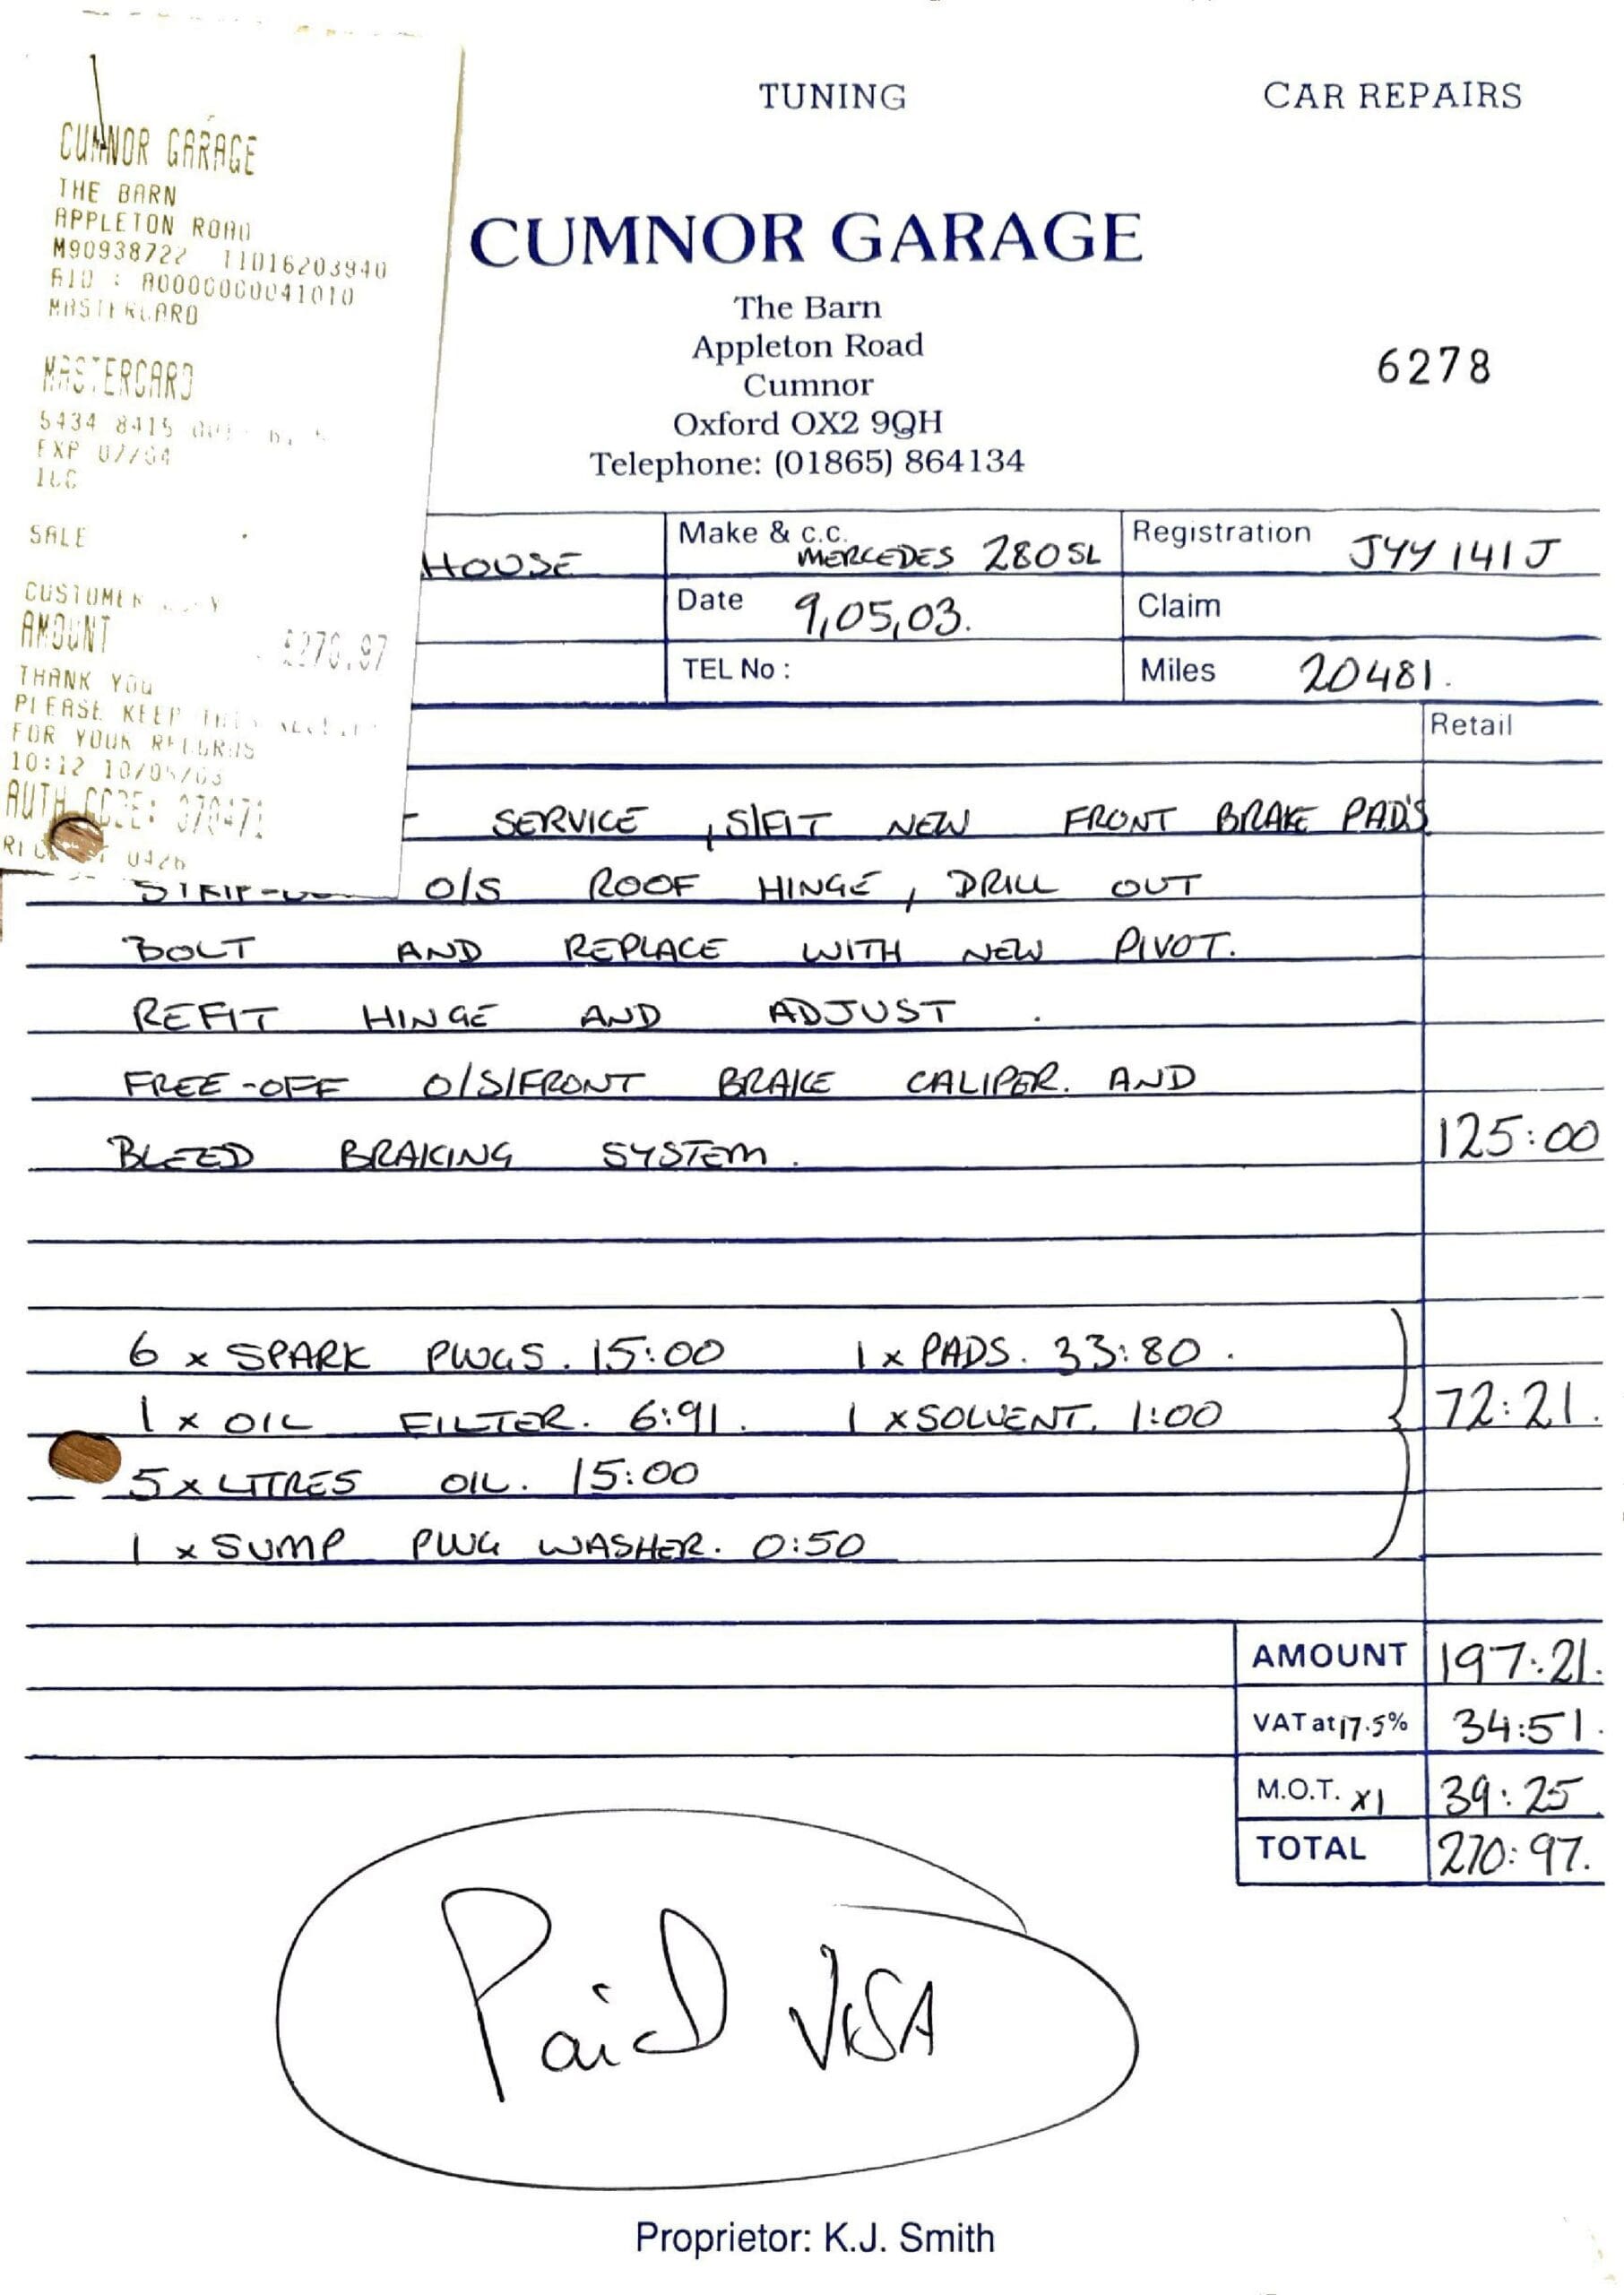 CUMNOR GARAGE
THE BARN
APPLETON ROAD
M90938722 T1016203940
AID : A0000000041010
MASTERCARD
MASTERCARD
5434 8415
EXP 07/04
SALE
CUSTOMER
AMOUNT £270.97
THANK YOU
PLEASE KEEP THIS RECEIPT
FOR YOUR RECORDS
10:12 10/05/03
AUTH CODE: 070471
0426
TUNING CAR REPAIRS
CUMNOR GARAGE
The Barn
Appleton Road
Cumnor
Oxford OX2 9QH
Telephone: (01865) 864134
6278
HOUSE Make & c.c. MERCEDES 280SL Registration JYY 141J
Date 9,05,03. Claim
TEL No : Miles 20481.
Retail
SERVICE , S/FIT NEW FRONT BRAKE PAD'S
O/S ROOF HINGE, DRILL OUT
BOLT AND REPLACE WITH NEW PIVOT.
REFIT HINGE AND ADJUST .
FREE-OFF O/S/FRONT BRAKE CALIPER. AND
BLEED BRAKING SYSTEM. 125:00
6 x SPARK PLUGS. 15:00 1 x PADS. 33:80.
1 x OIL FILTER. 6:91. 1 x SOLVENT. 1:00 72:21.
5 x LITRES OIL. 15:00
1 x SUMP PLUG WASHER. 0:50
AMOUNT 197:21.
VAT at 17.5% 34:51.
M.O.T. x1 39:25
TOTAL 270:97.
Paid VISA
Proprietor: K.J. Smith